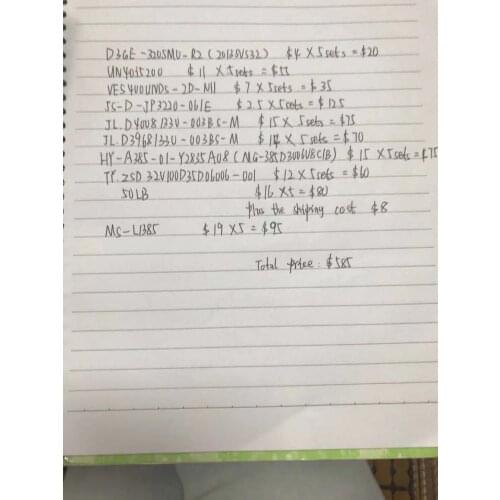 D3GE-320SM0-R2 (2013SVS32) $4 X 5sets = $20
UN40J5200 $11 X 5sets = $55
VES400UNDS-2D-N11 $7 X 5sets = $35
JS-D-JP3220-061E $2.5 X 5sets = $12.5
JL.D4008133U-003BS-M $15 X 5sets = $75
JL.D39681330-003BS-M $14 X 5sets = $70
HY-A385-01-Y2835A08 (NLG-385D3006V8C1B) $15 X 5sets = $75
TF.ZSD 32V100D35D06006-001 $12 X 5sets = $60
50LB $16 X 5 = $80
plus the shipping cost $8
MS-L1385 $19 X 5 = $95
Total price: $585